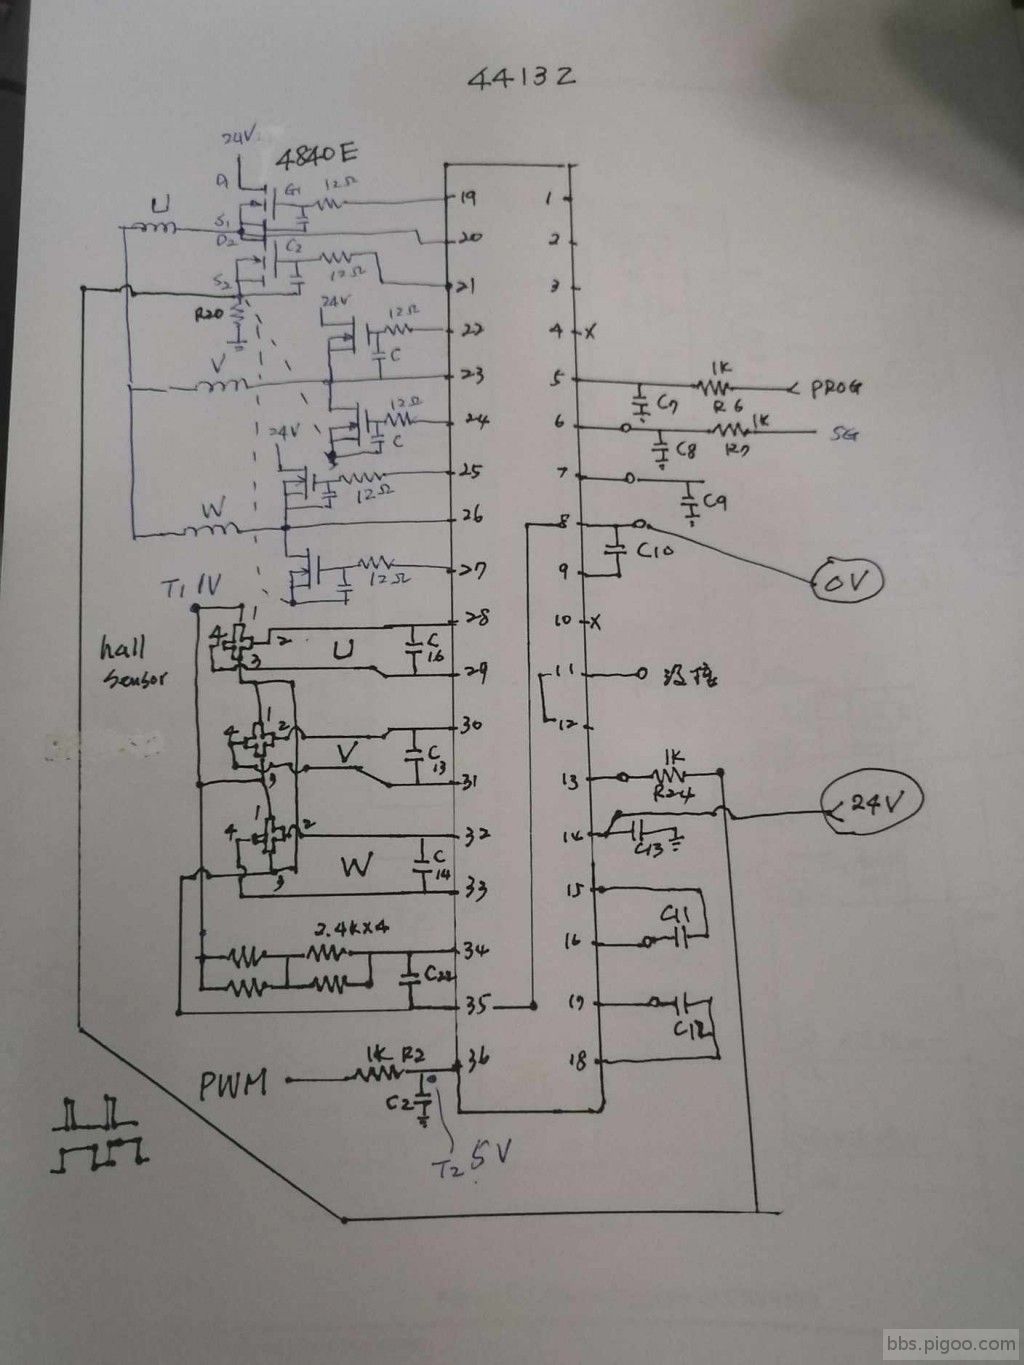 44132
24V
4840E
D
G1
12Ω
19
1
U
S1
D2
20
2
G2
12Ω
S2
21
3
R20
24V
12Ω
22
4
X
V
C
23
5
1K
R6
PROG
C7
12Ω
24
6
1K
R7
SG
C8
C
24V
25
7
C9
12Ω
W
26
8
C10
0V
27
9
12Ω
T1 1V
28
10
X
1
4
2
3
U
C
16
hall
sensor
29
11
30
12
1
4
2
3
V
C
13
31
13
1K
R24
24V
1
4
2
3
W
32
14
C13
C
14
33
15
C11
16
2.4K×4
34
C22
35
17
C12
18
PWM
1K R2
36
C2
T2 5V
bbs.pigoo.com